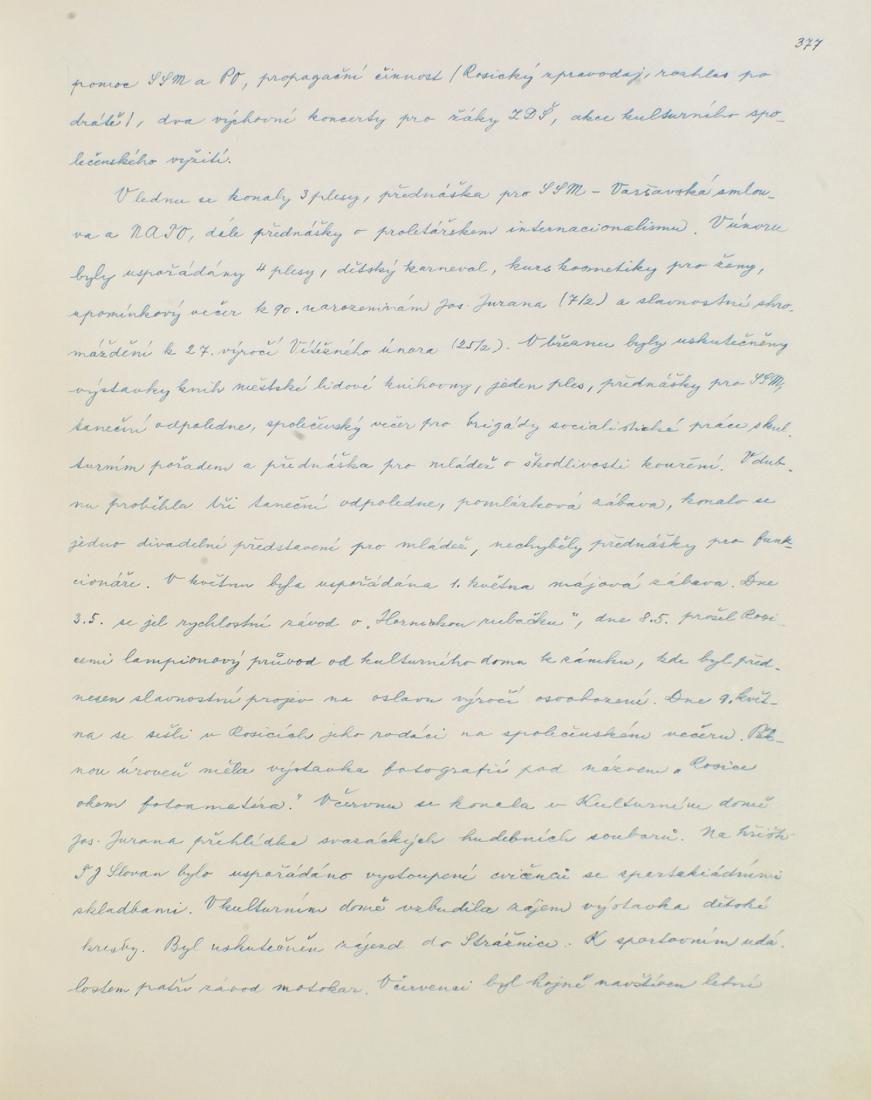 377
pomoc SSM a PO, propagační činnost (Rosický zpravodaj, rozhlas po
drátě), dva výchovné koncerty pro žáky ZDŠ, akce kulturního spo-
lečenského vyžití.
V lednu se konaly 3 plesy, přednáška pro SSM - Varšavská smlou-
va a NATO, dále přednášky o proletářském internacionalismu. V únoru
byly uspořádány 4 plesy, dětský karneval, kurs kosmetiky pro ženy,
vzpomínkový večer k 90. narozeninám Jos. Jurana (7/2) a slavnostní shro-
máždění k 27. výročí Vítězného února (25/2). V březnu byly uskutečněny
výstavky knih městské lidové knihovny, jeden ples, přednášky pro SSM,
taneční odpoledne, společenský večer pro brigády socialistické práce s kul-
turním pořadem a přednáška pro mládež o škodlivosti kouření. V dub-
nu proběhla tři taneční odpoledne, pomlázková zábava, konalo se
jedno divadelní představení pro mládež, nechyběly přednášky pro funk-
cionáře. V květnu byla uspořádána 1. května májová zábava. Dne
3.5. se jel rychlostní závod o „Hornickou rubačku", dne 8.5. prošel Rosi-
cemi lampionový průvod od kulturního domu k zámku, kde byl před-
nesen slavnostní projev na oslavu výročí osvobození. Dne 9. květ-
na se sešli v Rosicích jeho rodáci na společenském večeru. Pěk-
nou úroveň měla výstavka fotografií pod názvem „Rosice
okem fotoamatéra." V červnu se konala v Kulturním domě
Jos. Jurana přehlídka svazáckých hudebních souborů. Na hřišti
TJ Slovan bylo uspořádáno vystoupení cvičenců se spartakiádními
skladbami. V kulturním domě vzbudila zájem výstavka dětské
kresby. Byl uskutečněn zájezd do Strážnice. K sportovním udá-
lostem patřil závod motokar. V červenci byl hojně navštíven letní